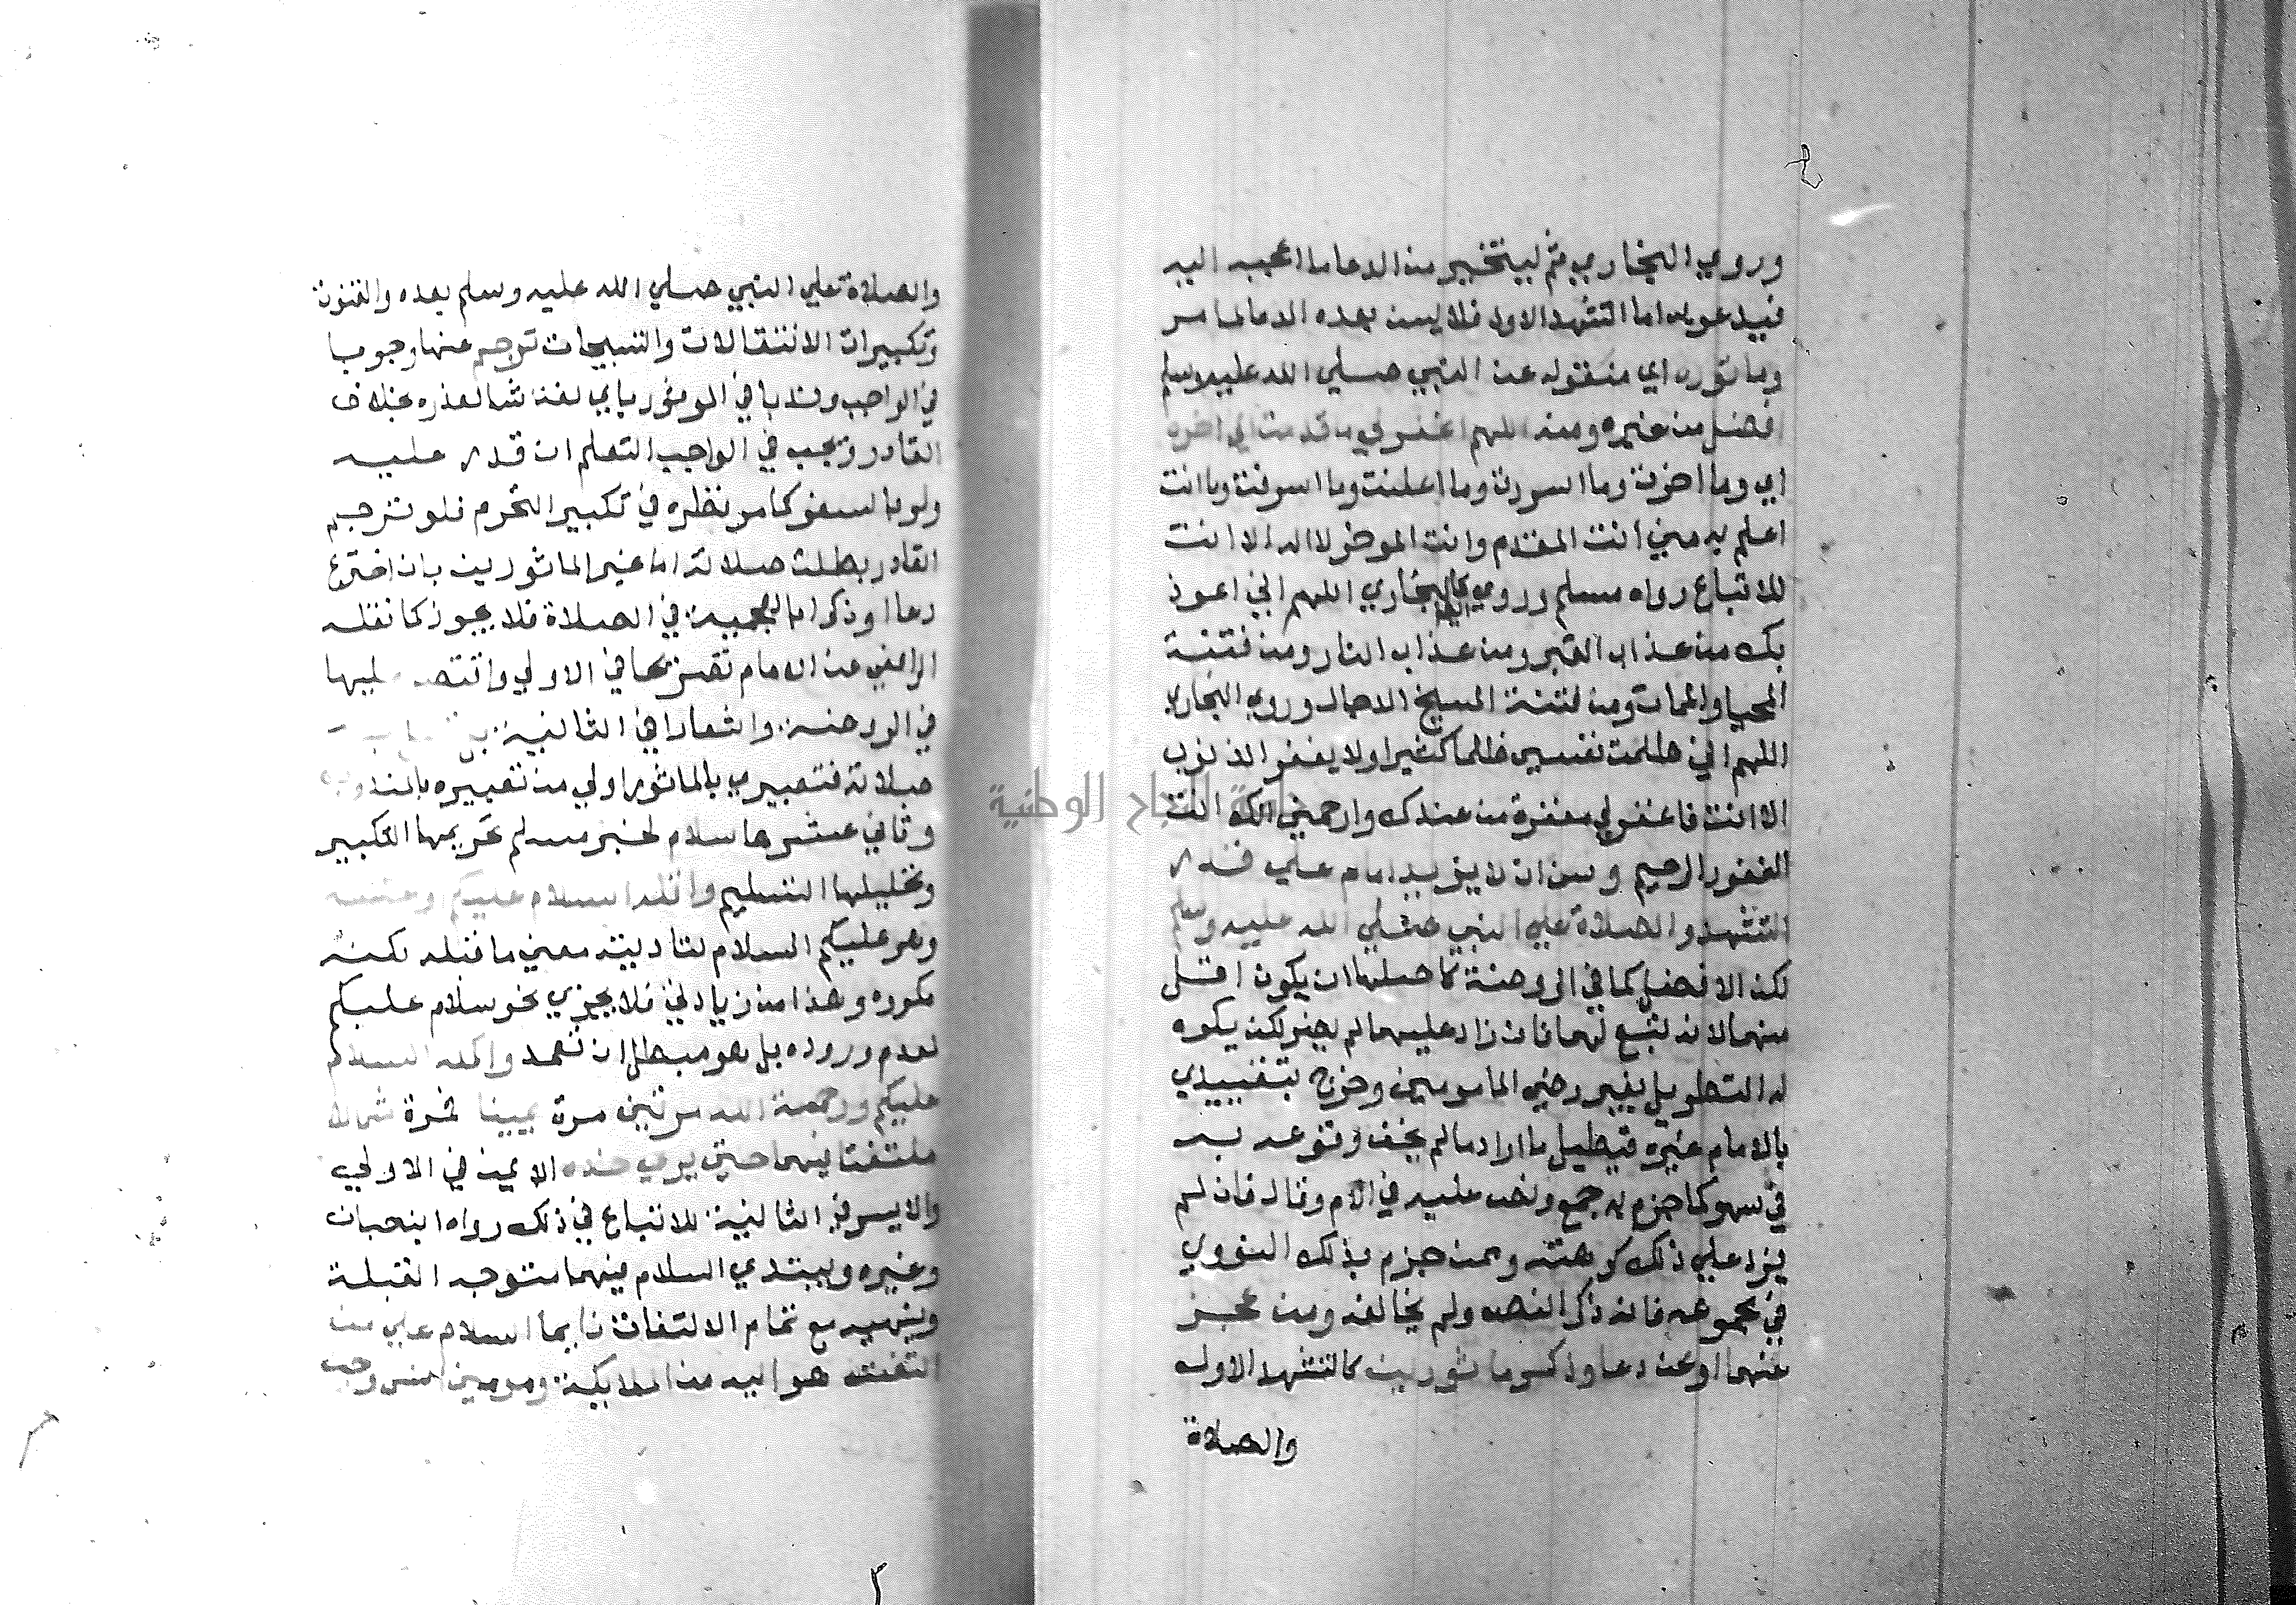 وروي البخاري ثم ليتخير من الدعا ما اعجبه اليه
فيدعو به اما التشهد الاول فلا يسن بعده الدعا لما مر
وماثوره اي منقوله عن النبي صلي الله عليه وسلم
افضل من غيره ومنه اللهم اغفر لي ما قدمت الي اخره
اي وما اخرت وما اسررت وما اعلنت وما اسرفت وما انت
اعلم به مني انت المقدم وانت الموخر لا اله الا انت
للاتباع رواه مسلم وروي البخاري اللهم اني اعوذ
بك من عذاب القبر ومن عذاب النار ومن فتنة
المحيا والممات ومن فتنة المسيح الدجال وروي البخاري
اللهم اني ظلمت نفسي ظلما كثيرا ولا يغفر الذنوب
الا انت فاغفر لي مغفرة من عندك وارحمني انك انت
الغفور الرحيم وسن ان لا يزيد امام علي قدر
التشهد والصلاة علي النبي صلي الله عليه وسلم
لكن الافضل كما في الروضة كاصلها ان يكون اقل
منهما لانه تبع لهما فان زاد عليهما لم يضر لكن يكره
له التطويل بغير رضي المامومين وخرج بتقييدي
بالامام غيره فيطيل ما اراد ما لم يخف وقوعه به
في سهو كما جزم به جمع ونص عليه في الام وقال فان لم
يزد علي ذلك كرهته وممن جزم بذلك النووي
في مجموعه فانه ذكر النص ولم يخالفه ومن عجز
عنهما او عن دعا وذكر ماثورين كالتشهد الاول
والصلاة
والصلاة علي النبي صلي الله عليه وسلم بعده والقنوت
وتكبيرات الانتقالات والتسبيحات ترجم عنها وجوبا
في الواجب وندبا في الماثور باي لغة شا لعذره بخلاف
القادر ويجب في الواجب التعلم ان قدر عليه
ولو بالسفر كما مر نظيره في تكبير التحرم فلو ترجم
القادر بطلت صلاته اما غير الماثورين بان اخترع
دعا او ذكرا بالعجمية في الصلاة فلا يجوز كما نقله
الرافعي عن الامام تصريحا في الاولي واقتصر عليها
في الروضة واشعارا في الثانية
صلاته فتعبيري بالماثور اولي من تعبيره بالمندوب
وثاني عشرها سلام لخبر مسلم تحريمها التكبير
وتحليلها التسليم واقله السلام عليكم وعكسه
وهو عليكم السلام لتاديته معني ما قبله لكنه
مكروه وهذا من زيادتي فلا يجزي نحو سلام عليكم
لعدم وروده بل هو مبطل ان تعمد واكمله السلام
عليكم ورحمة الله مرتين مرة يمينا فمرة شمالا
ملتفتا فيهما حتي يري خده الايمن في الاولي
والايسر في الثانية للاتباع في ذلك رواه ابن حبان
وغيره ويبتدي السلام فيهما متوجه القبلة
وينهيه مع تمام الالتفات ناويا السلام علي من
التفت هو اليه من الملايكة ومومني انس وجن
جامعة النجاح الوطنية